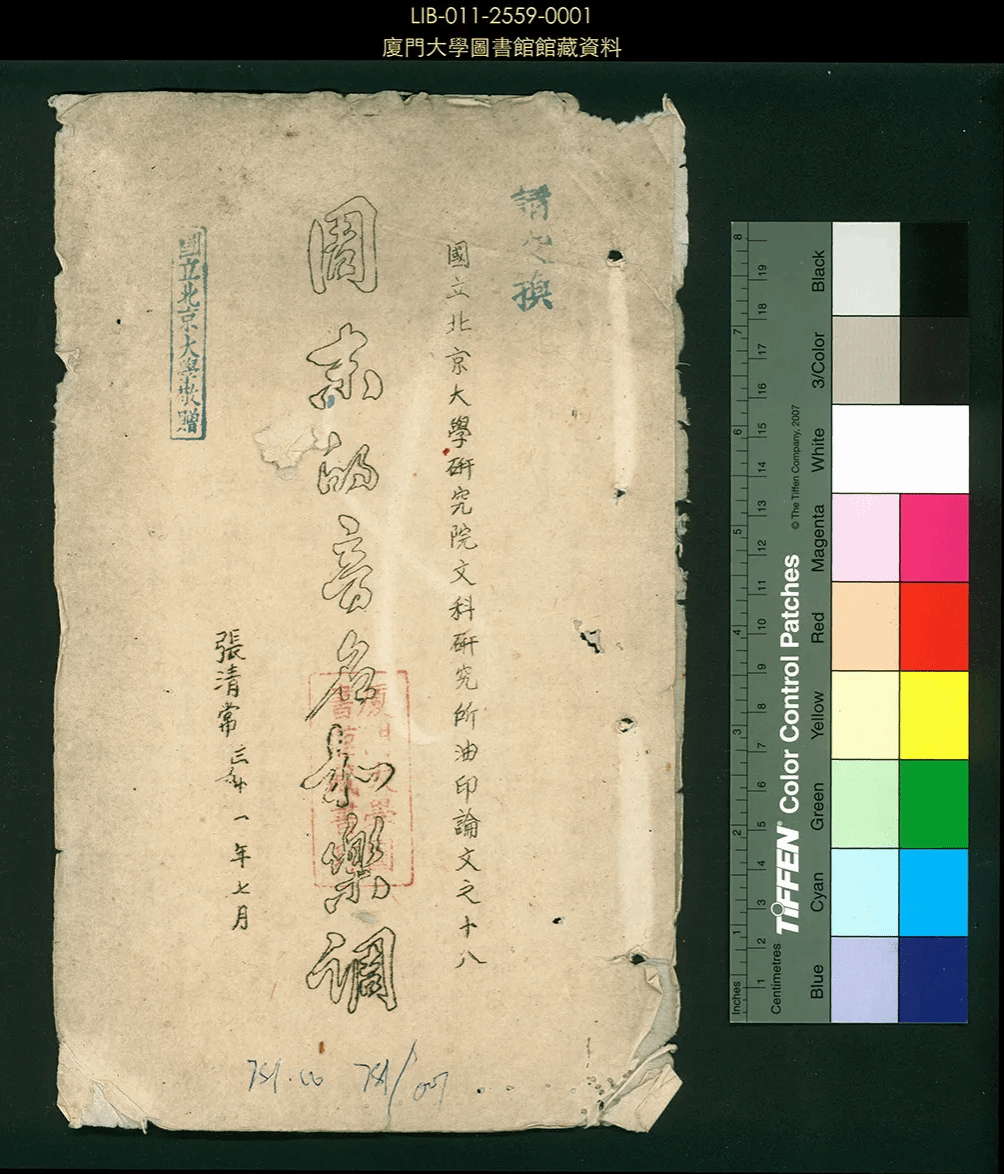 LIB-011-2559-0001
廈門大學圖書館館藏資料
請交換
國立北京大學研究院文科研究所油印論文之十八
周末的音名和樂调
張清常
一年七月
國立北京大學敬贈
廈門大學圖書館藏書
781/007
Inches
Centimetres
1 2 3 4 5 6 7 8
1 2 3 4 5 6 7 8 9 10 11 12 13 14 15 16 17 18 19
TIFFEN® Color Control Patches
© The Tiffen Company, 2007
Black
3/Color
White
Magenta
Red
Yellow
Green
Cyan
Blue